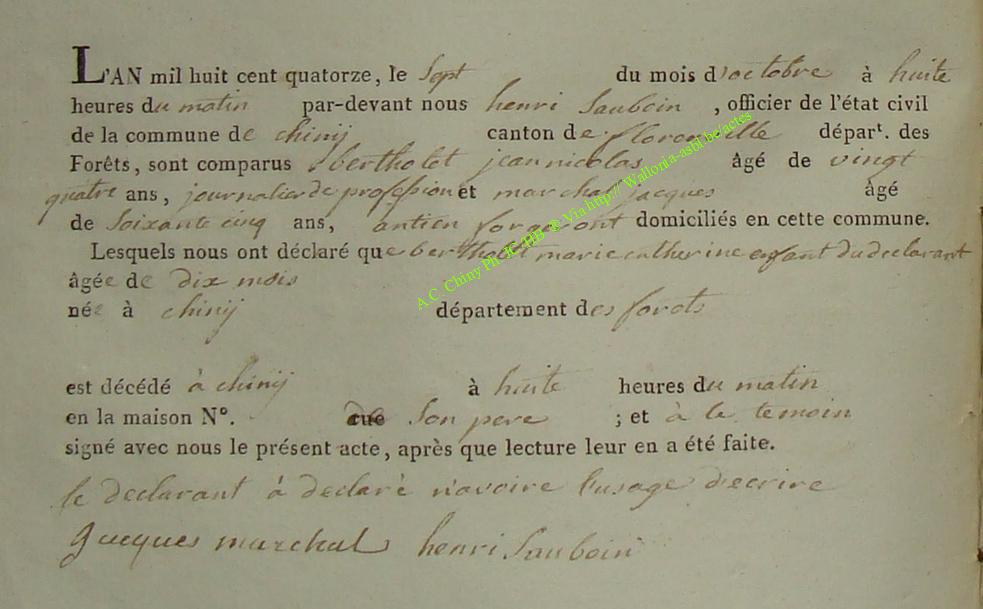 L'AN mil huit cent quatorze, le Sept du mois d'octobre à huite
heures du matin par-devant nous henri Sauboin , officier de l'état civil
de la commune de chinij canton de florenville départ. des
Forêts, sont comparus bertholet jean nicolas âgé de vingt
quatre ans, journalier de profession et marchal jacques âgé
de soixante cinq ans, antien forgeront domiciliés en cette commune.
Lesquels nous ont déclaré que bertholet marie catherine enfant du declarant
âgée de dix mois
née à chinij département des forets
est décédé à chinij à huite heures du matin
en la maison N°. rue de Son pere ; et à le temoin
signé avec nous le présent acte, après que lecture leur en a été faite.
le declarant à declaré n'avoire l'usage d'ecrire
Jacques marchal henri Sauboin
A.C. Chiny Ph JC HB @ Via http// Wallonia-asbl-be/actes